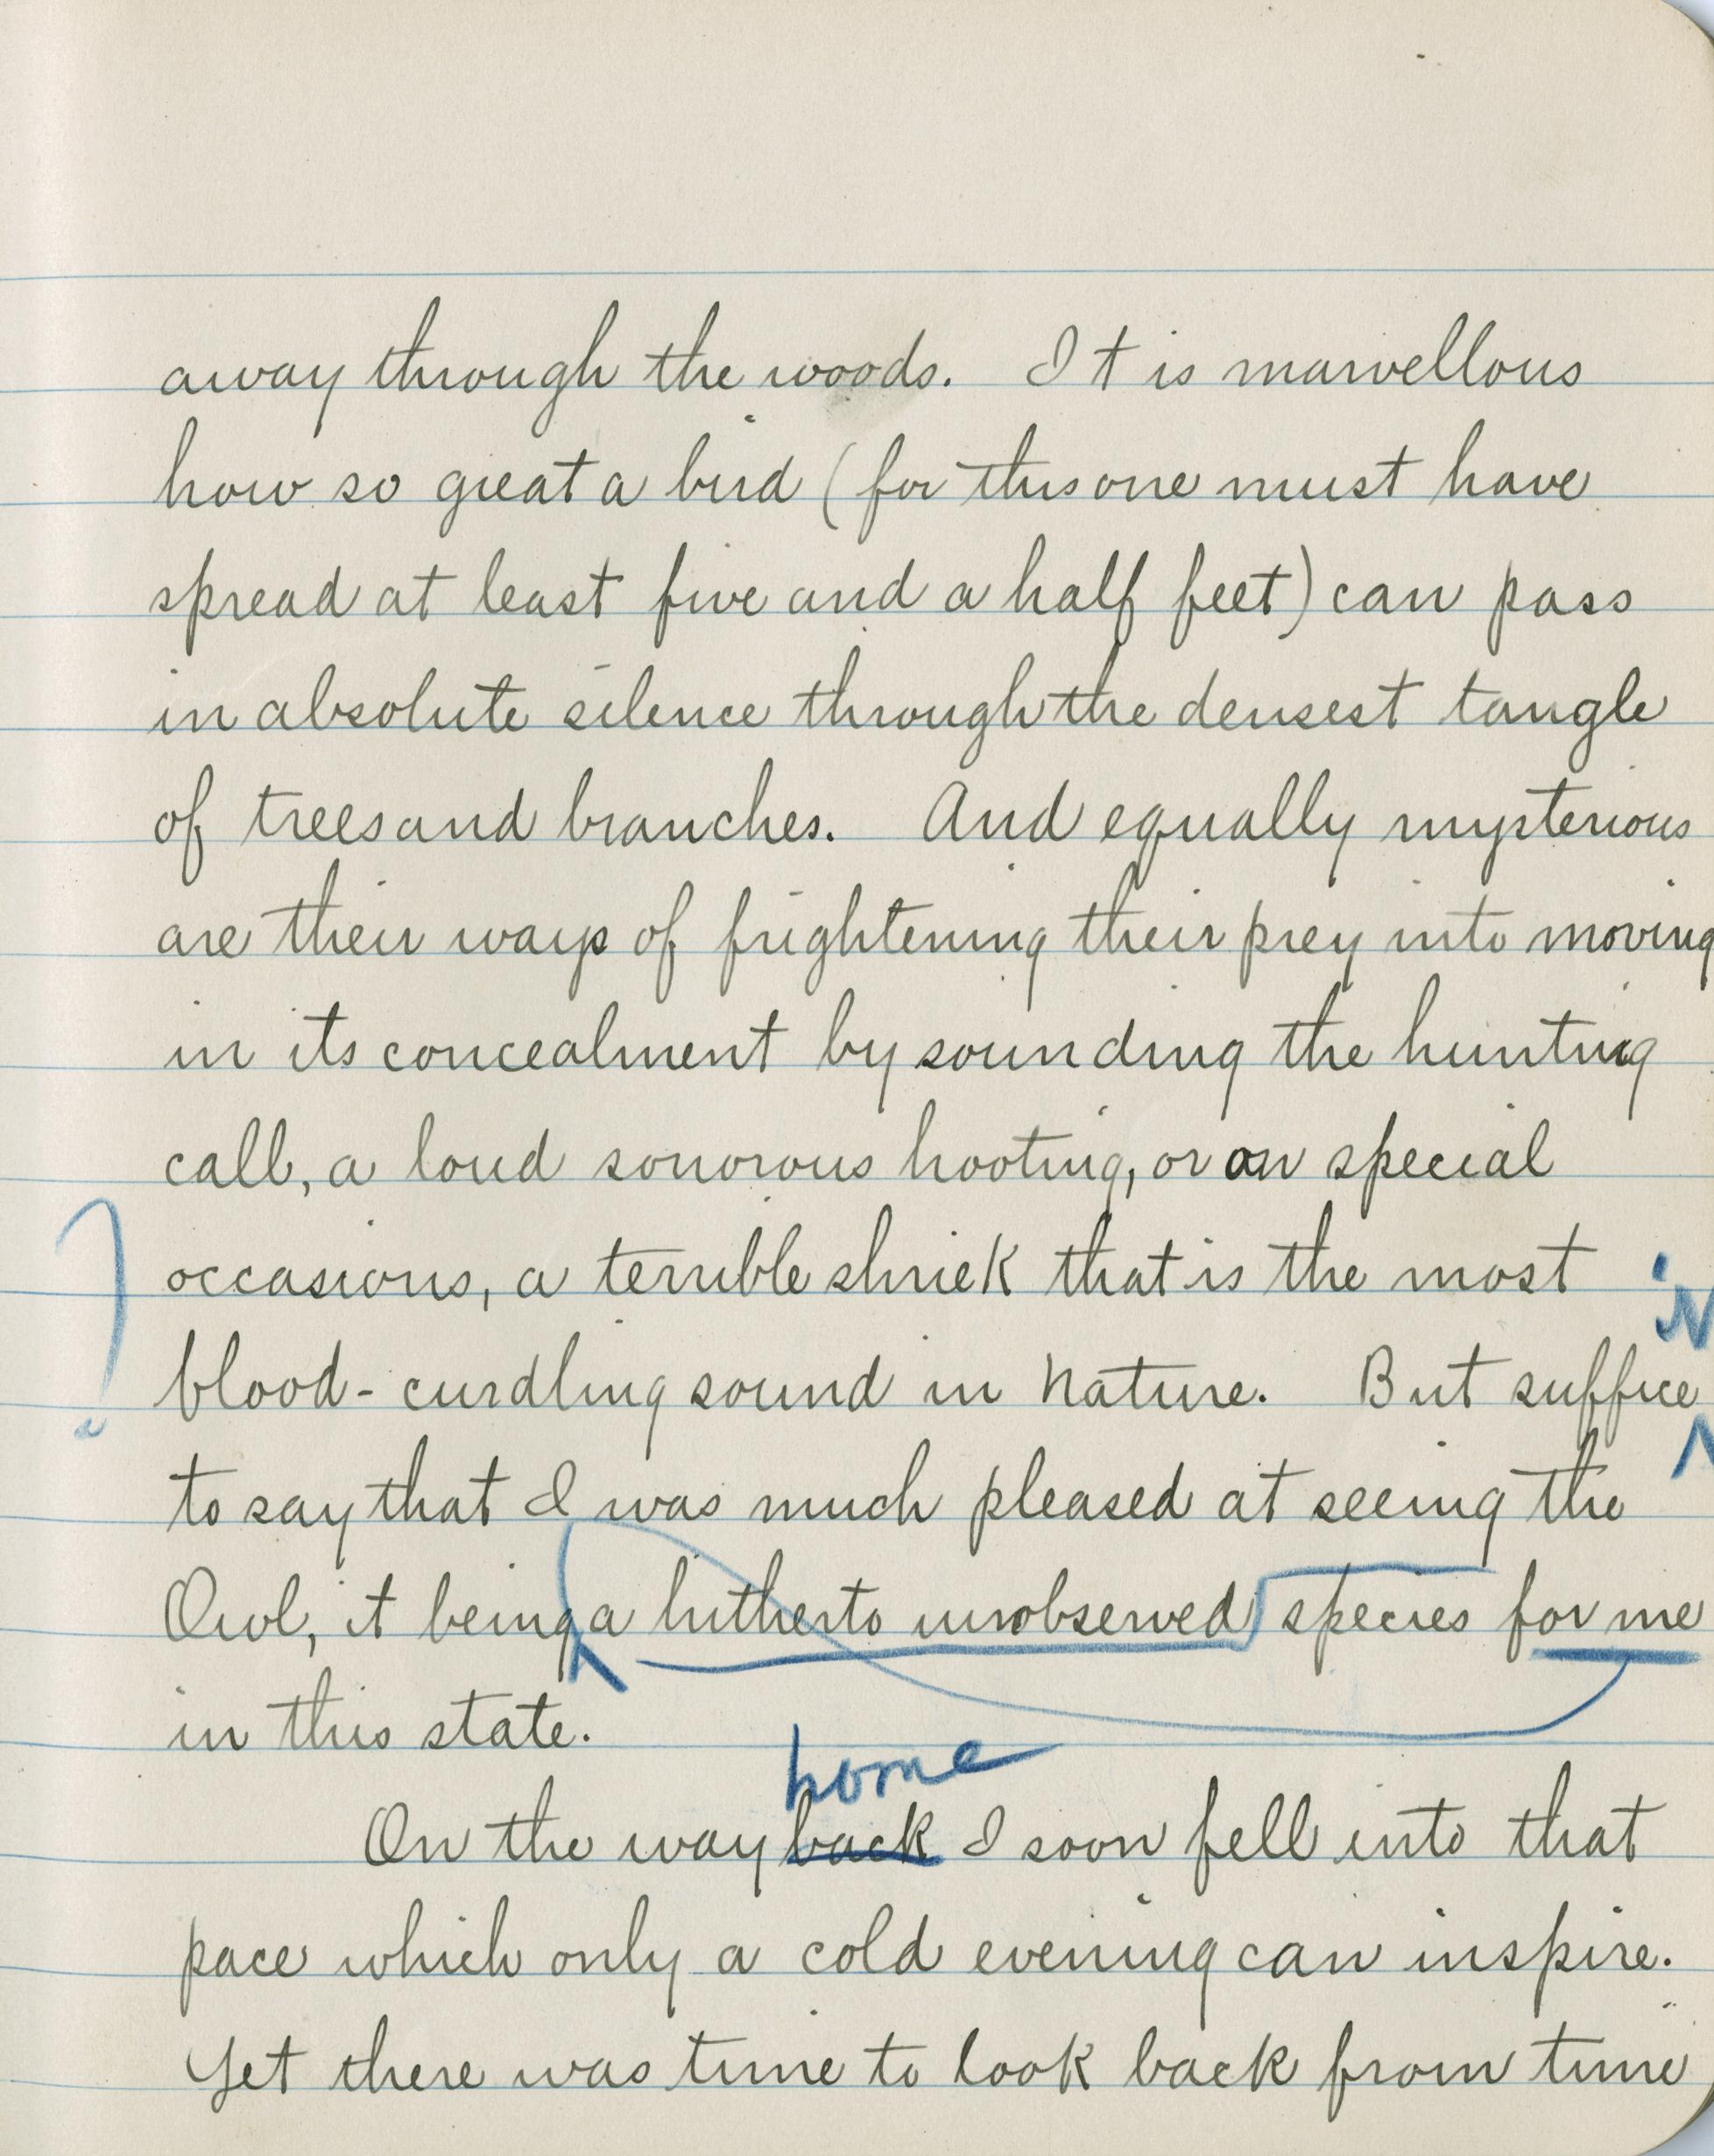 away through the woods. It is marvellous
how so great a bird (for this one must have
spread at least five and a half feet) can pass
in absolute silence through the densest tangle
of trees and branches. And equally mysterious
are their ways of frightening their prey into moving
in its concealment by sounding the hunting
call, a loud sonorous hooting, or on special
occasions, a terrible shriek that is the most
blood-curdling sound in Nature. But suffice
to say that I was much pleased at seeing the
Owl, it being a hitherto unobserved species for me
in this state.
home
On the way back I soon fell into that
pace which only a cold evening can inspire.
Yet there was time to look back from time